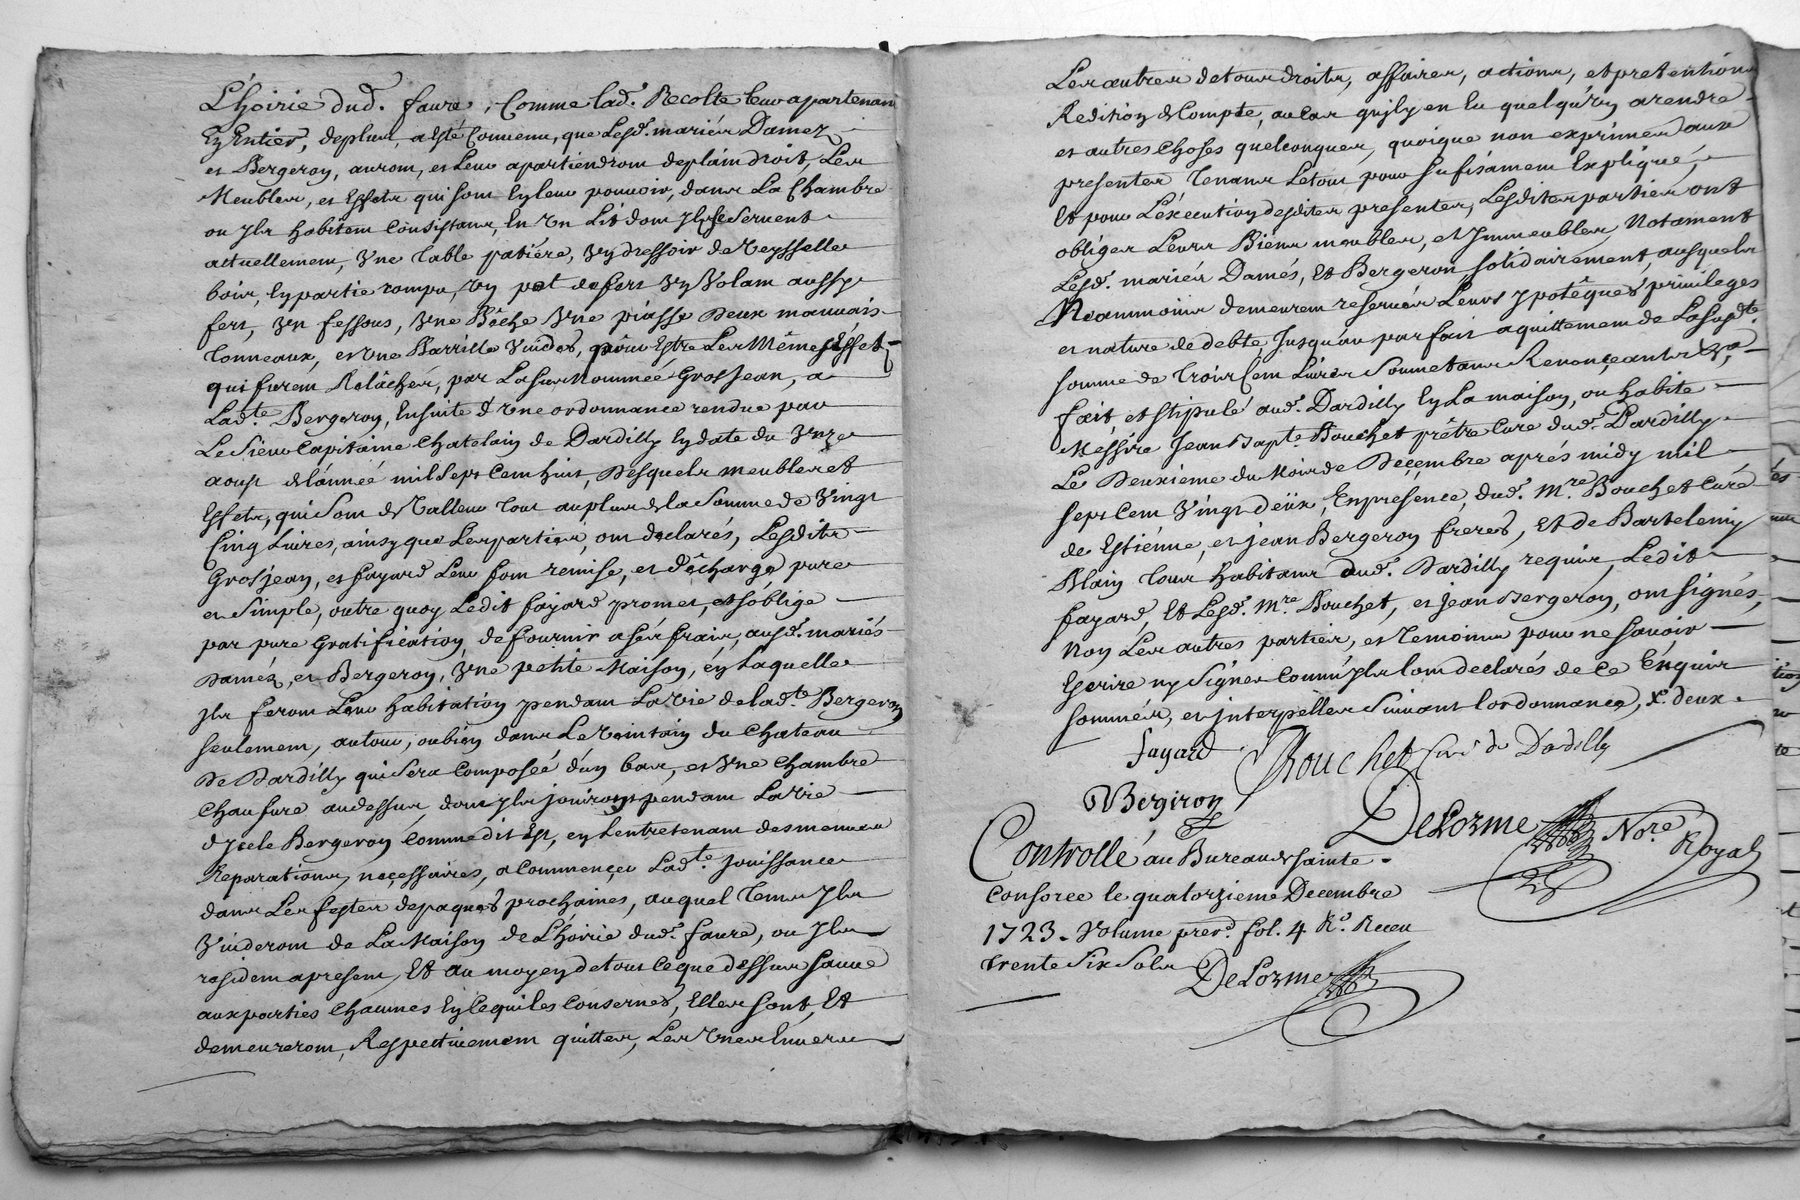 L'hoirie dud. faure, Comme lad. Recolte leur apartenant
En Entier, deplus, a esté Convenu, que Lesd. mariés Damez
et Bergeron, auront, et Leur apartiendront deplain droit, Les
Meubles, et Effets qui sont En leur pouvoir, dans La Chambre
ou Jls habitent Consistans, En Vn Lit dont Jls se Servent
actuellement, Vne Table patiére, Vn dressoir de Veysselle
bois, En partie rompu, Vn pot de fert Vn Volam aussy
fert, Vn fessous, Vne Bêche Vne piasse Deux mauvais
Tonneaux, et Vne Barrille Vuides, pour Estre Les Mêmes Effets
qui furent Relâchés, par La sus Nommée Grosjean, a
Lad.te Bergeron, Ensuite d'Vne ordonnance rendue par
Le Sieur Capitaine Chatelain de Dardilly En date du Vnze
aoust de l'année mil Sept Cent huit, Desquels meubles et
Effets, qui Sont de Valleur Tout au plus de la Somme de Vingt
Cinq Livres, ainsy que Les parties, ont declarés, Lesdits
Grosjean, et fayard Leur font remise, et Décharge pure
et Simple, outre quoy Ledit fayard promet, et s'oblige
par pure Gratification, de fournir a ses frais, ausd. mariés
Damés, et Bergeron, Vne petite Maison, en Laquelle
Jls feront Leur habitation pendant La Vie de lad.te Bergeron
seulement, autour, ou bien dans Le Vintain du Chateau
De Dardilly qui Sera Composée d'un bas, et Vne Chambre
Chaufure au dessus, dont Jls jouiront pendant La Vie
d'Jcele Bergeron Comme dit Est, en L'entretenant des menues
Reparations, neçessaires, a Commençer Lad.te jouissance
dans Les festes de paques prochaines, auquel Tems Jls
Vuideront de La Maison de L'hoirie dud. faure, ou Jls
residem apresent, Et au moyen de tout Ce que dessus sauve
aux parties Chacunes En Ce qui les Conserne, Elles sont, Et
demeureront, Respectivement quittes, Les Vnes Envers
Les autres de tous droits, affaires, actions, et pretentions
Redition de Compte, au Cas qu'il y en Eu quelqu'un a rendre
et autres Choses quelconques, quoique non exprimés aux
presentes Tenans Le tout pour Sufisament Expliqué,
Et pour L'éxecution desdites presentes, Lesdites parties ont
obligés Leurs Biens meubles, et Jmmeubles, Notament
Lesd. mariés Damés, Et Bergeron Solidairement, ausquels
Neammoins demeurent reservés Leurs ypotêques privileges
et nature de debte Jusqu'au parfait aquittement de La Susd.te
somme de Trois Cent Livres Soumetans Renonçeants &.a
fait, et Stipulé aud. Dardilly En La maison, ou habite
Messire Jean Bapt.e Bouchet prêtre Curé dud. Dardilly
Le Deuxieme du Mois de Deçembre aprés midy mil
sept Cent Vingt deux, En presence, dud. M.re Bouchet Curé
de Estiénne, et Jean Bergeron freres, Et de Bartelemy
Blain Tous habitans dud. Dardilly requis, Ledit
fayard, Et Lesd. M.re Bouchet, et Jean Bergeron, ont Signés,
Non Les autres parties, et Temoins pour ne Savoir
Ecrire ny Signer Comm'Jls l'ont declarés de Ce Enquis
Sommés, et interpellés Suivant l'ordonnance, x. deux.
fayard Bouchet Curé de Dadilly
Bergiron
DeLorme No.re Royal
Controllé au Bureau de Sainte
Consorce le quatorzieme Decembre
1723. Volume prer.d fol. 4 R.o Receu
trente Six Sols
DeLorme